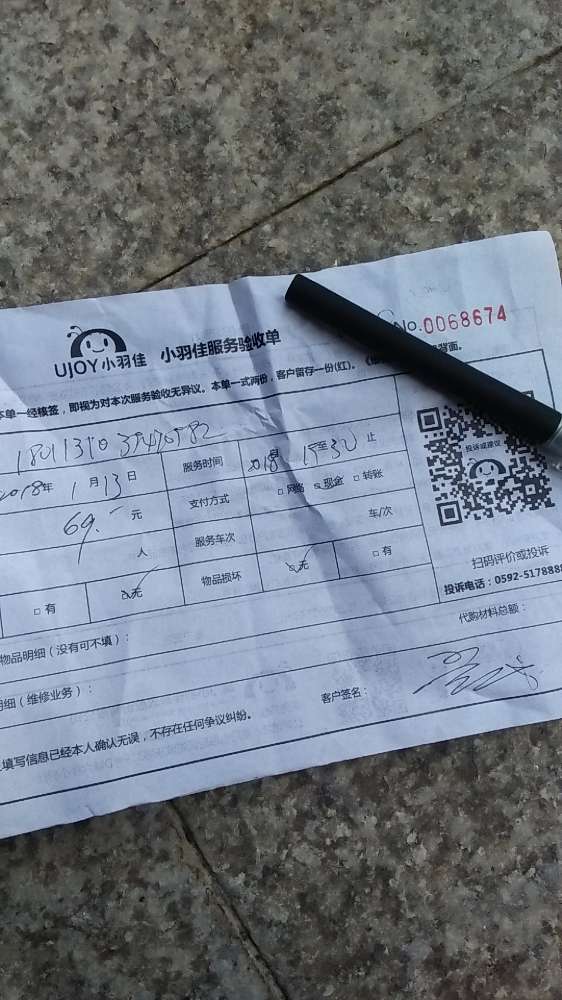 No.0068674
UJOY小羽佳 小羽佳服务验收单
本单一经核签，即视为对本次服务验收无异议。本单一式两份，客户留存一份(红)。
背面。
服务时间 至 30 止
2018年 1月13日 支付方式 □网络 现金 □转账
投诉或建议
69.- 元 服务车次 车/次
人
□有 无 物品损坏 无 □有
扫码评价或投诉
投诉电话：0592-5178888
物品明细（没有可不填）：
代购材料总额：
明细（维修业务）：
客户签名：
填写信息已经本人确认无误，不存在任何争议纠纷。